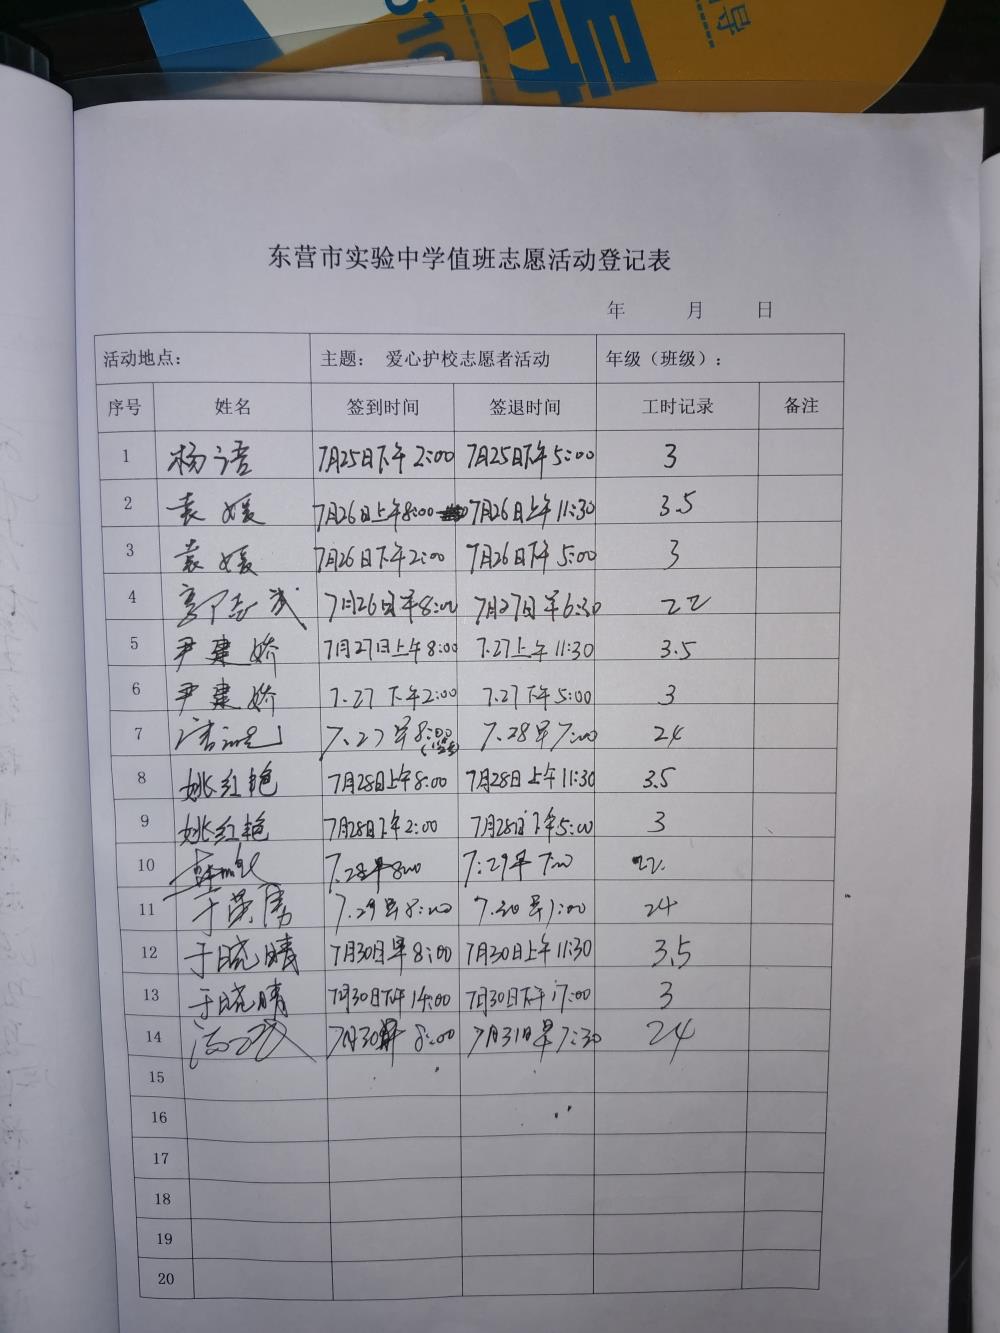 导
东营市实验中学值班志愿活动登记表
年 月 日
活动地点： 主题： 爱心护校志愿者活动 年级（班级）：
序号 姓名 签到时间 签退时间 工时记录 备注
1 杨语 7月25日下午2:00 7月25日下午5:00 3
2 袁媛 7月26日上午8:00 7月26日上午11:30 3.5
3 袁媛 7月26日下午2:00 7月26日下午5:00 3
4 7月26日早8:00 7月27日早6:30 22
5 尹建娇 7月27日上午8:00 7.27上午11:30 3.5
6 尹建娇 7.27下午2:00 7.27下午5:00 3
7 7.27早8:00 7.28早7:00 24
8 姚红艳 7月28日上午8:00 7月28日上午11:30 3.5
9 姚红艳 7月28日下午2:00 7月28日下午5:00 3
10 7.28早8:00 7:29早7:00 22
11 于荣勇 7.29早8:00 7.30早7:00 24
12 于晓晴 7月30日早8:00 7月30日上午11:30 3.5
13 于晓晴 7月30日下午14:00 7月30日下午17:00 3
14 7月30早8:00 7月31日早7:30 24
15
16
17
18
19
20